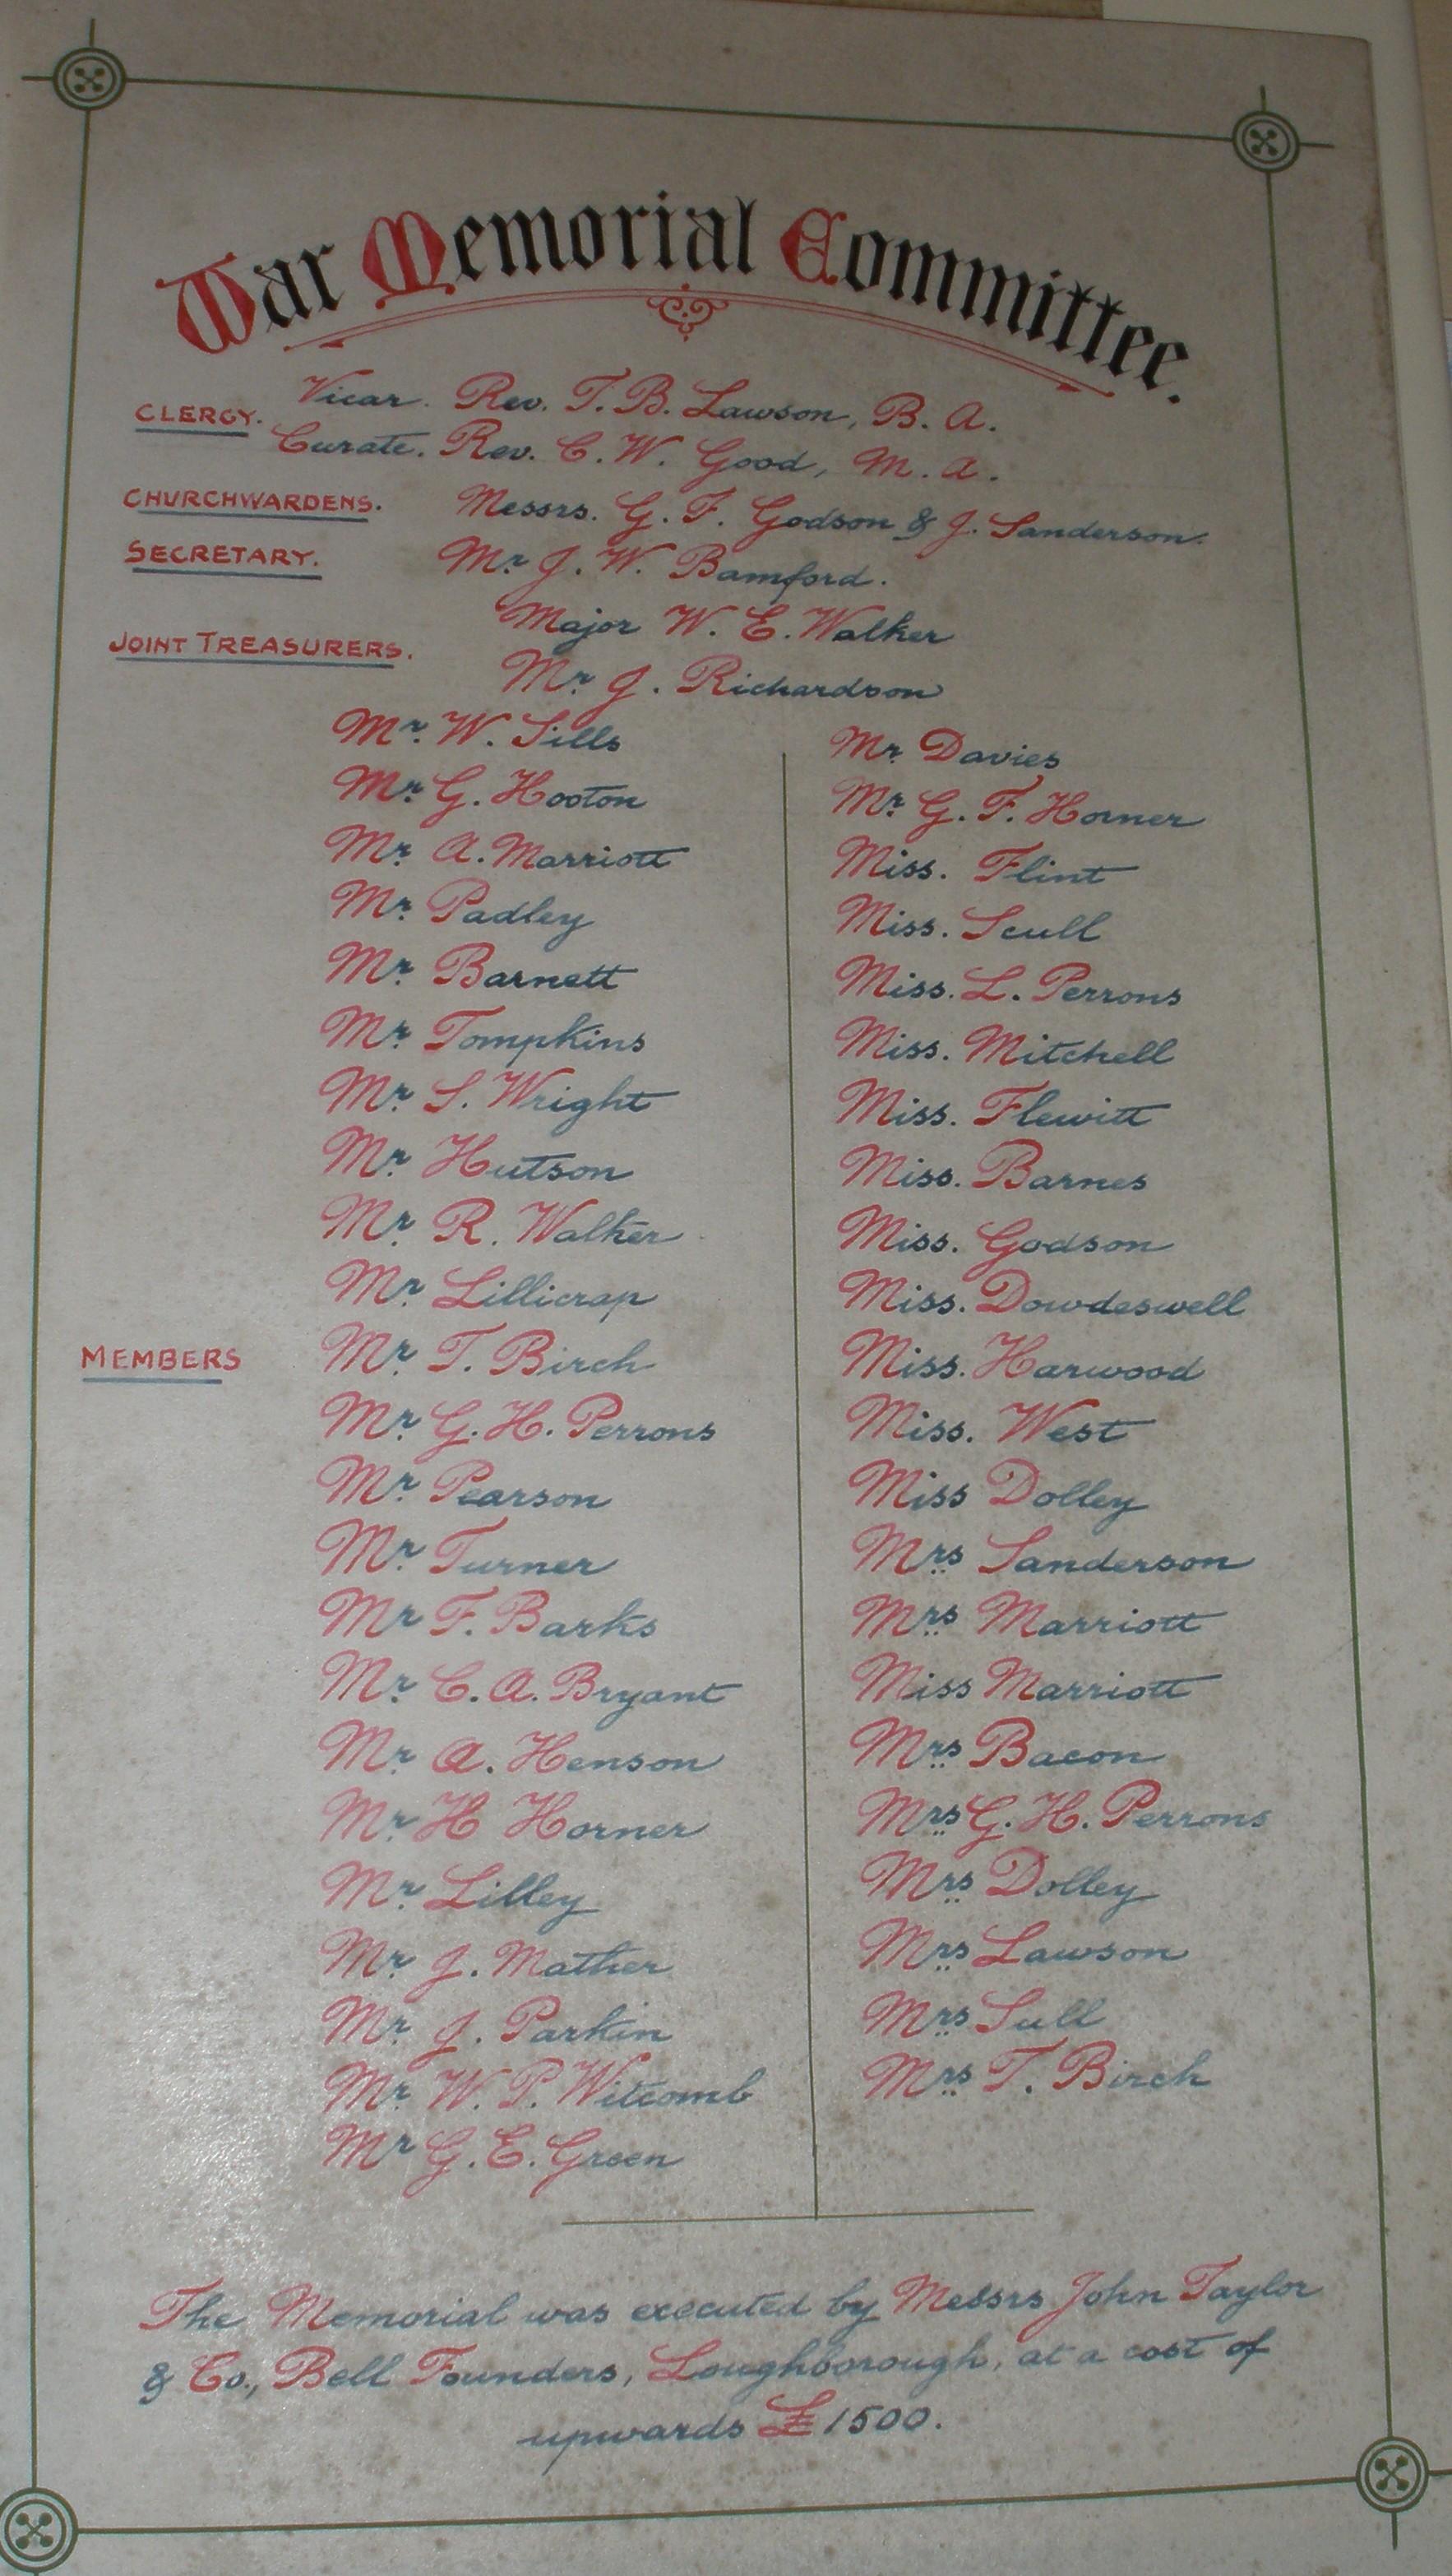 War Memorial Committee.
CLERGY. Vicar. Rev. T. B. Lawson, B. A.
Curate. Rev. C. W. Good, M. A.
CHURCHWARDENS. Messrs. G. F. Godson & J. Sanderson.
SECRETARY. Mr. J. W. Bamford.
Major W. E. Walker
JOINT TREASURERS.
Mr. J. Richardson
Mr. W. Sills
Mr. G. Hooton
Mr. A. Marriott
Mr. Padley
Mr. Barnett
Mr. Tompkins
Mr. S. Wright
Mr. Hutson
Mr. R. Walker
Mr. Lillicrap
MEMBERS Mr. T. Birch
Mr. G. H. Perrons
Mr. Pearson
Mr. Turner
Mr F. Barks
Mr. C. A. Bryant
Mr. A. Henson
Mr. H Horner
Mr. Lilley
Mr. J. Mather
Mr. J. Parkin
Mr. W. P. Witcomb
Mr G. E. Green
Mr. Davies
Mr. G. F. Horner
Miss. Flint
Miss. Scull
Miss. L. Perrons
Miss. Mitchell
Miss. Flewitt
Miss. Barnes
Miss. Godson
Miss. Dowdeswell
Miss. Harwood
Miss. West
Miss Dolley
Mrs Sanderson
Mrs Marriott
Miss Marriott
Mrs Bacon
Mrs G. H. Perrons
Mrs Dolley
Mrs Lawson
Mrs Sull
Mrs T. Birch
The Memorial was executed by Messrs John Taylor
& Co., Bell Founders, Loughborough, at a cost of
upwards £1500.